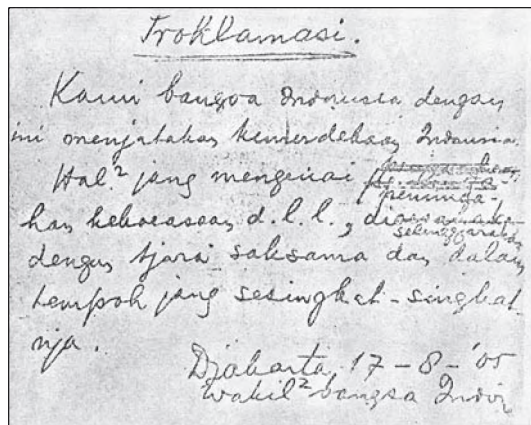 Proklamasi.
Kami bangsa Indonesia dengan
ini menjatakan kemerdekaan Indonesia.
Hal² jang mengenai peminda-
han kekoeasaan d.l.l., diselenggarakan
dengan tjara saksama dan dalam
tempoh jang sesingkat-singkat
nja.
Djakarta, 17 - 8 - '05
Wakil² bangsa Indon